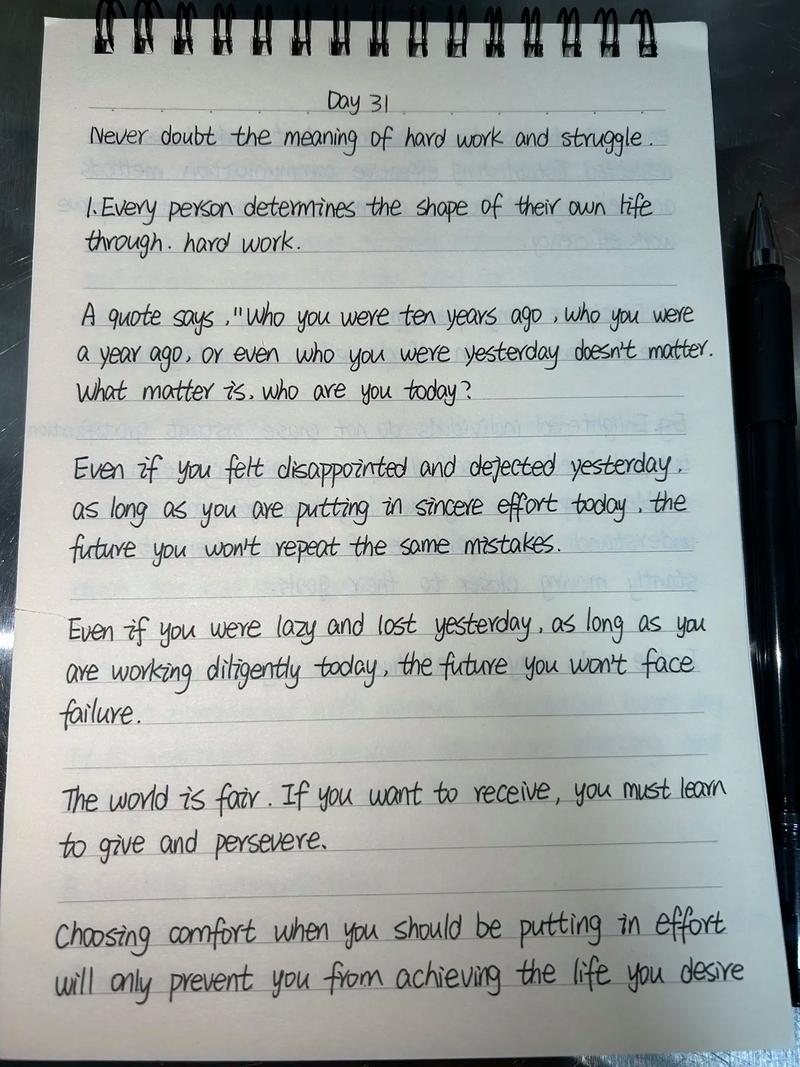 Day 31
Never doubt the meaning of hard work and struggle.
1.Every person determines the shape of their own life
through. hard work.
A quote says ,"Who you were ten years ago , who you were
a year ago, or even who you were yesterday doesn't matter.
What matter is, who are you today?
Even if you felt disappointed and dejected yesterday,
as long as you are putting in sincere effort today, the
future you won't repeat the same mistakes.
Even if you were lazy and lost yesterday, as long as you
are working diligently today, the future you won't face
failure.
The world is fair. If you want to receive, you must learn
to give and persevere.
Choosing comfort when you should be putting in effort
will only prevent you from achieving the life you desire